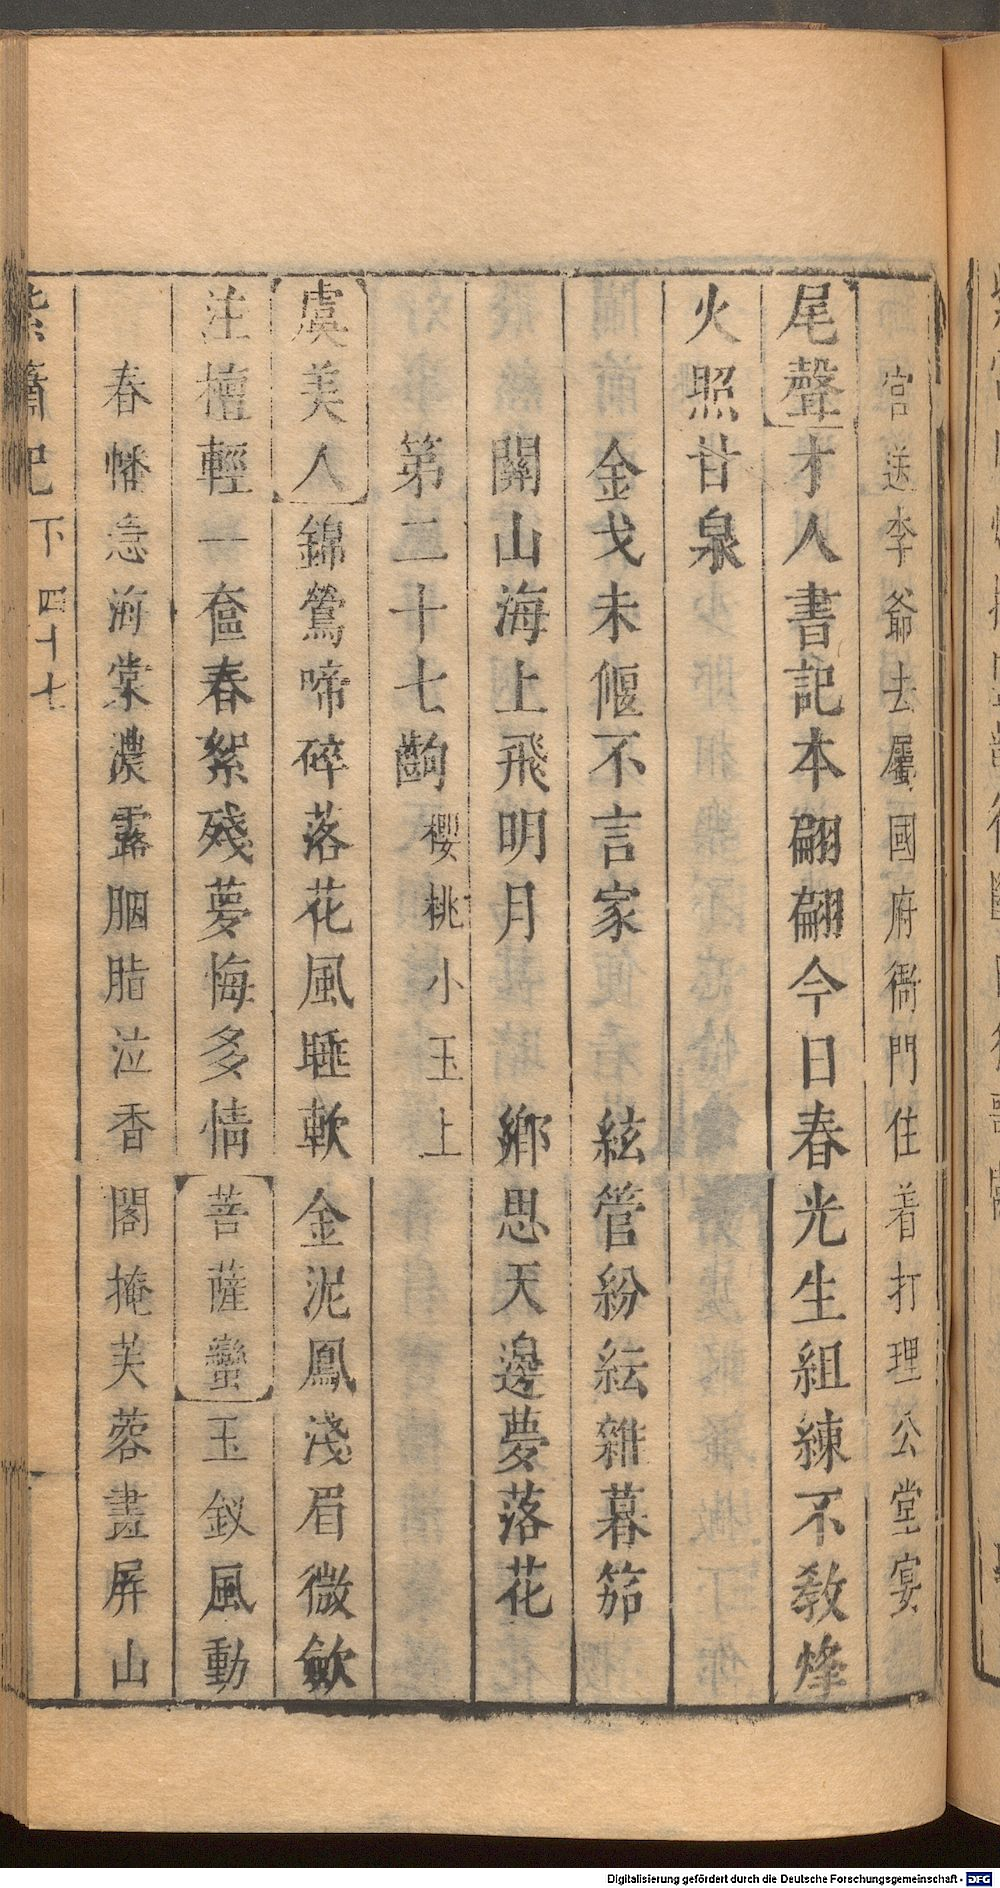 宮送李爺去屬國府衙門住着打理公堂宴
尾聲才人書記本翩翩今日春光生組練不教烽
火照甘泉
金戈未偃不言家 絃管紛紜雜暮笳
關山海上飛明月 鄉思天邊夢落花
第二十七齣 櫻桃小玉上
虞美人錦鶯啼碎落花風睡軟 金泥鳳淺眉微斂
注檀輕一奩春絮殘夢悔多情 菩薩蠻玉釵風動
春幡急海棠濃露胭脂泣香閣掩芙蓉畫屏山
紫簫記 下 四十七
Digitalisierung gefördert durch die Deutsche Forschungsgemeinschaft - DFG